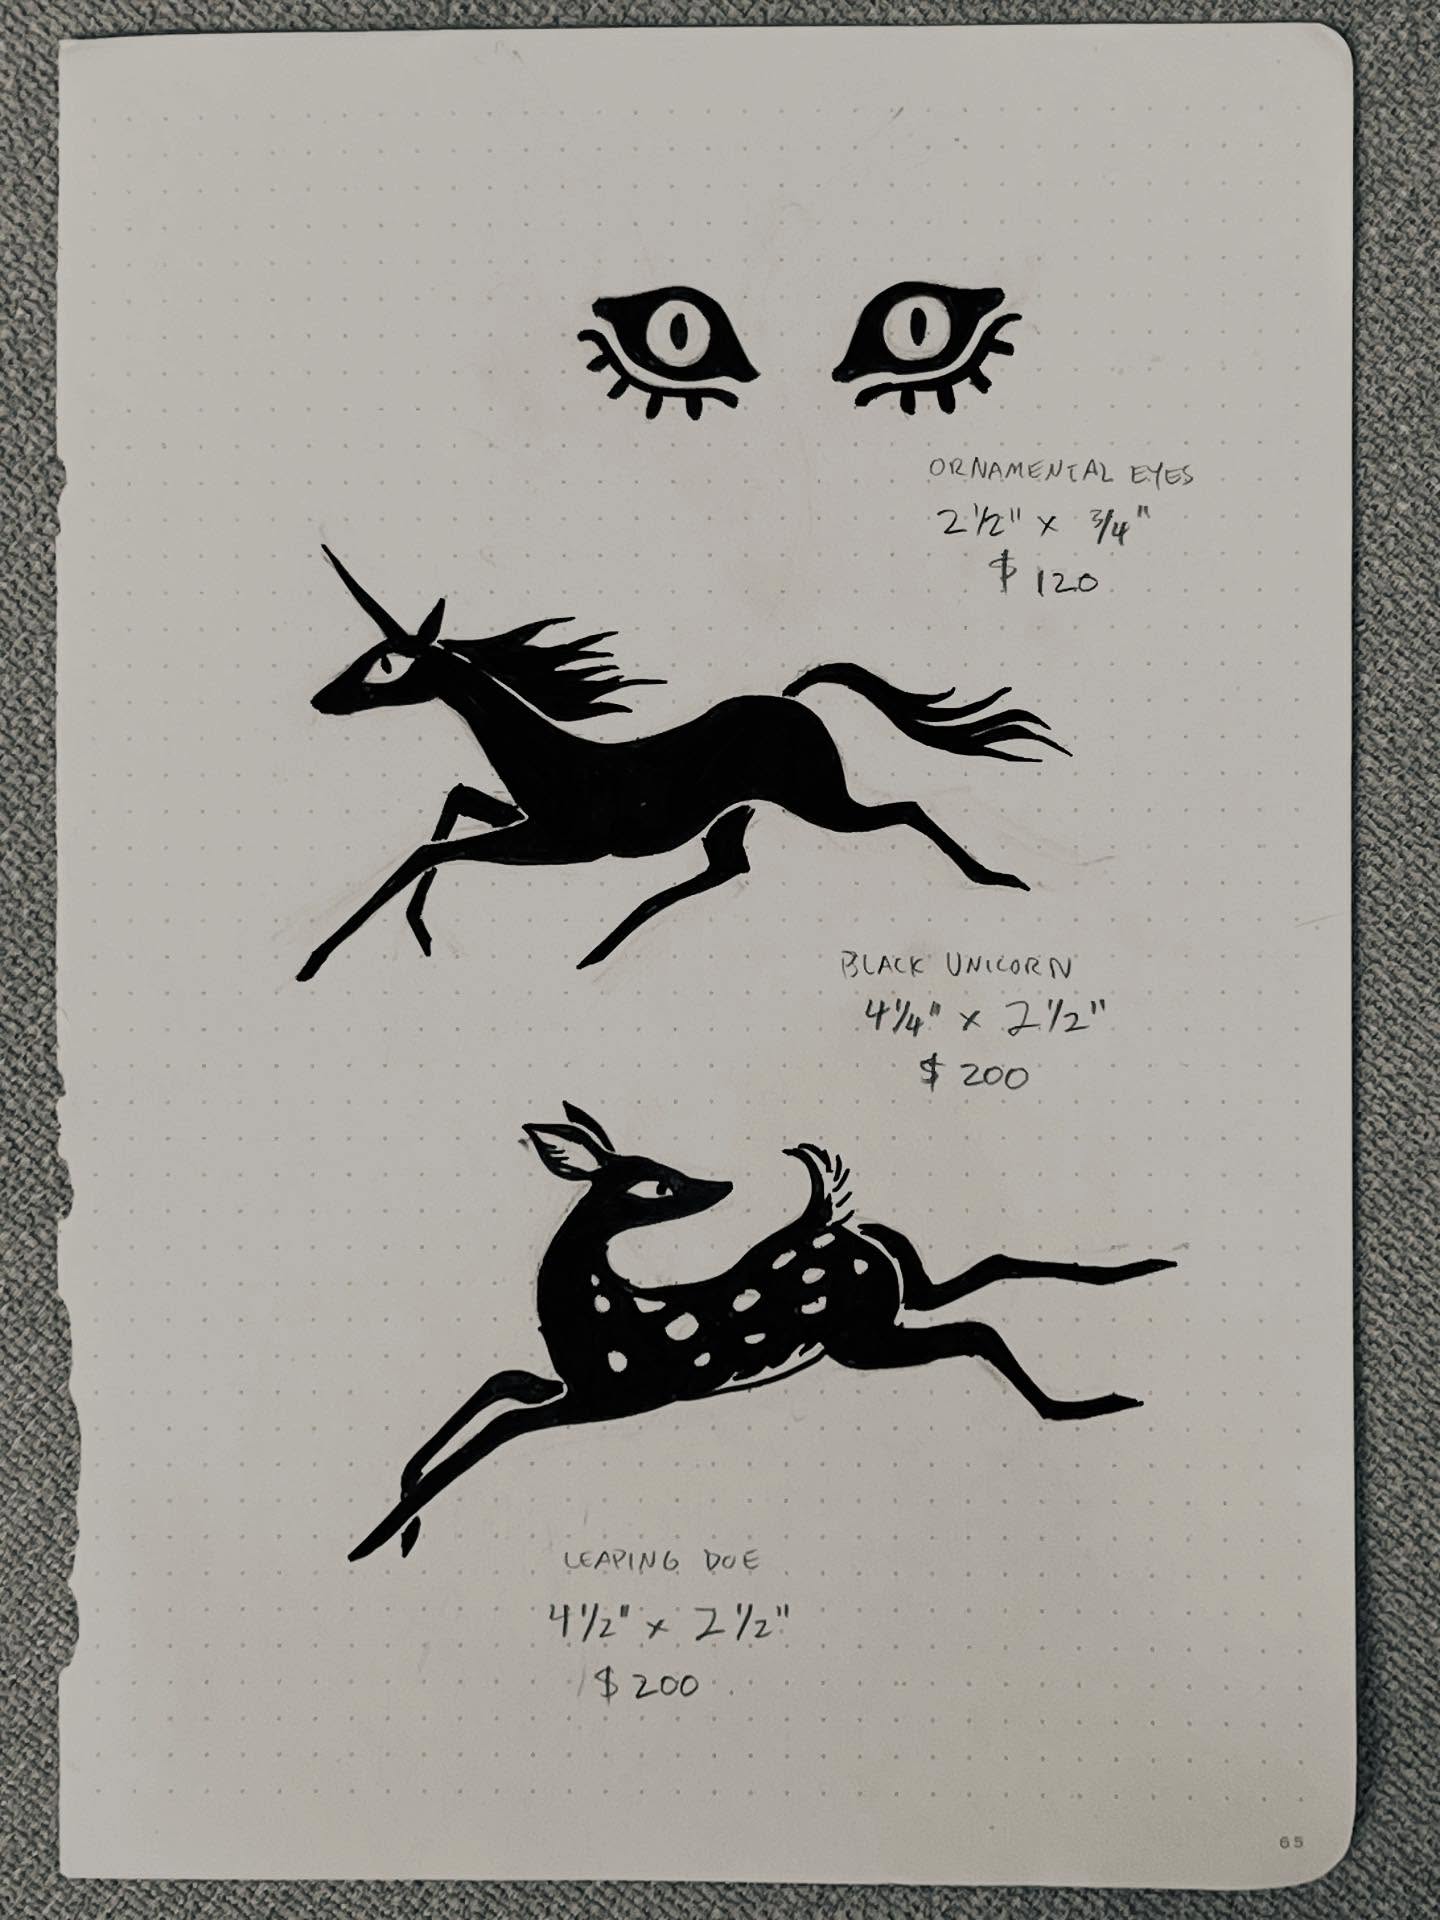 ORNAMENTAL EYES
2 1/2" x 3/4"
$ 120
BLACK UNICORN
4 1/4" x 2 1/2"
$ 200
LEAPING DOE
4 1/2" x 2 1/2"
$ 200
65